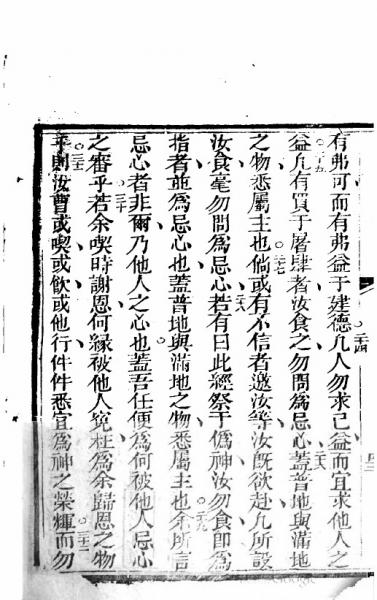 有弗可而有弗益于建德二十四凡人勿求己益而宜求他人之
益二十五凡有買于屠肆者汝食之勿問為忌心二十六蓋普地與滿地
之物悉屬主也二十七倘或有不信者邀汝等汝既欲赴凡所設
汝食毫勿問為忌心二十八若有曰此經祭于偽神汝勿食即為
指者並為忌心也蓋普地與滿地之物悉屬主也二十九余所言
忌心者非爾乃他人之心也蓋吾任便為何被他人忌心
之審乎三十若余喫時謝恩何緣被他人冤枉為余歸恩之物
乎三十一則汝曹或喫或飲或他行件件悉宜為神之榮輝三十二而勿